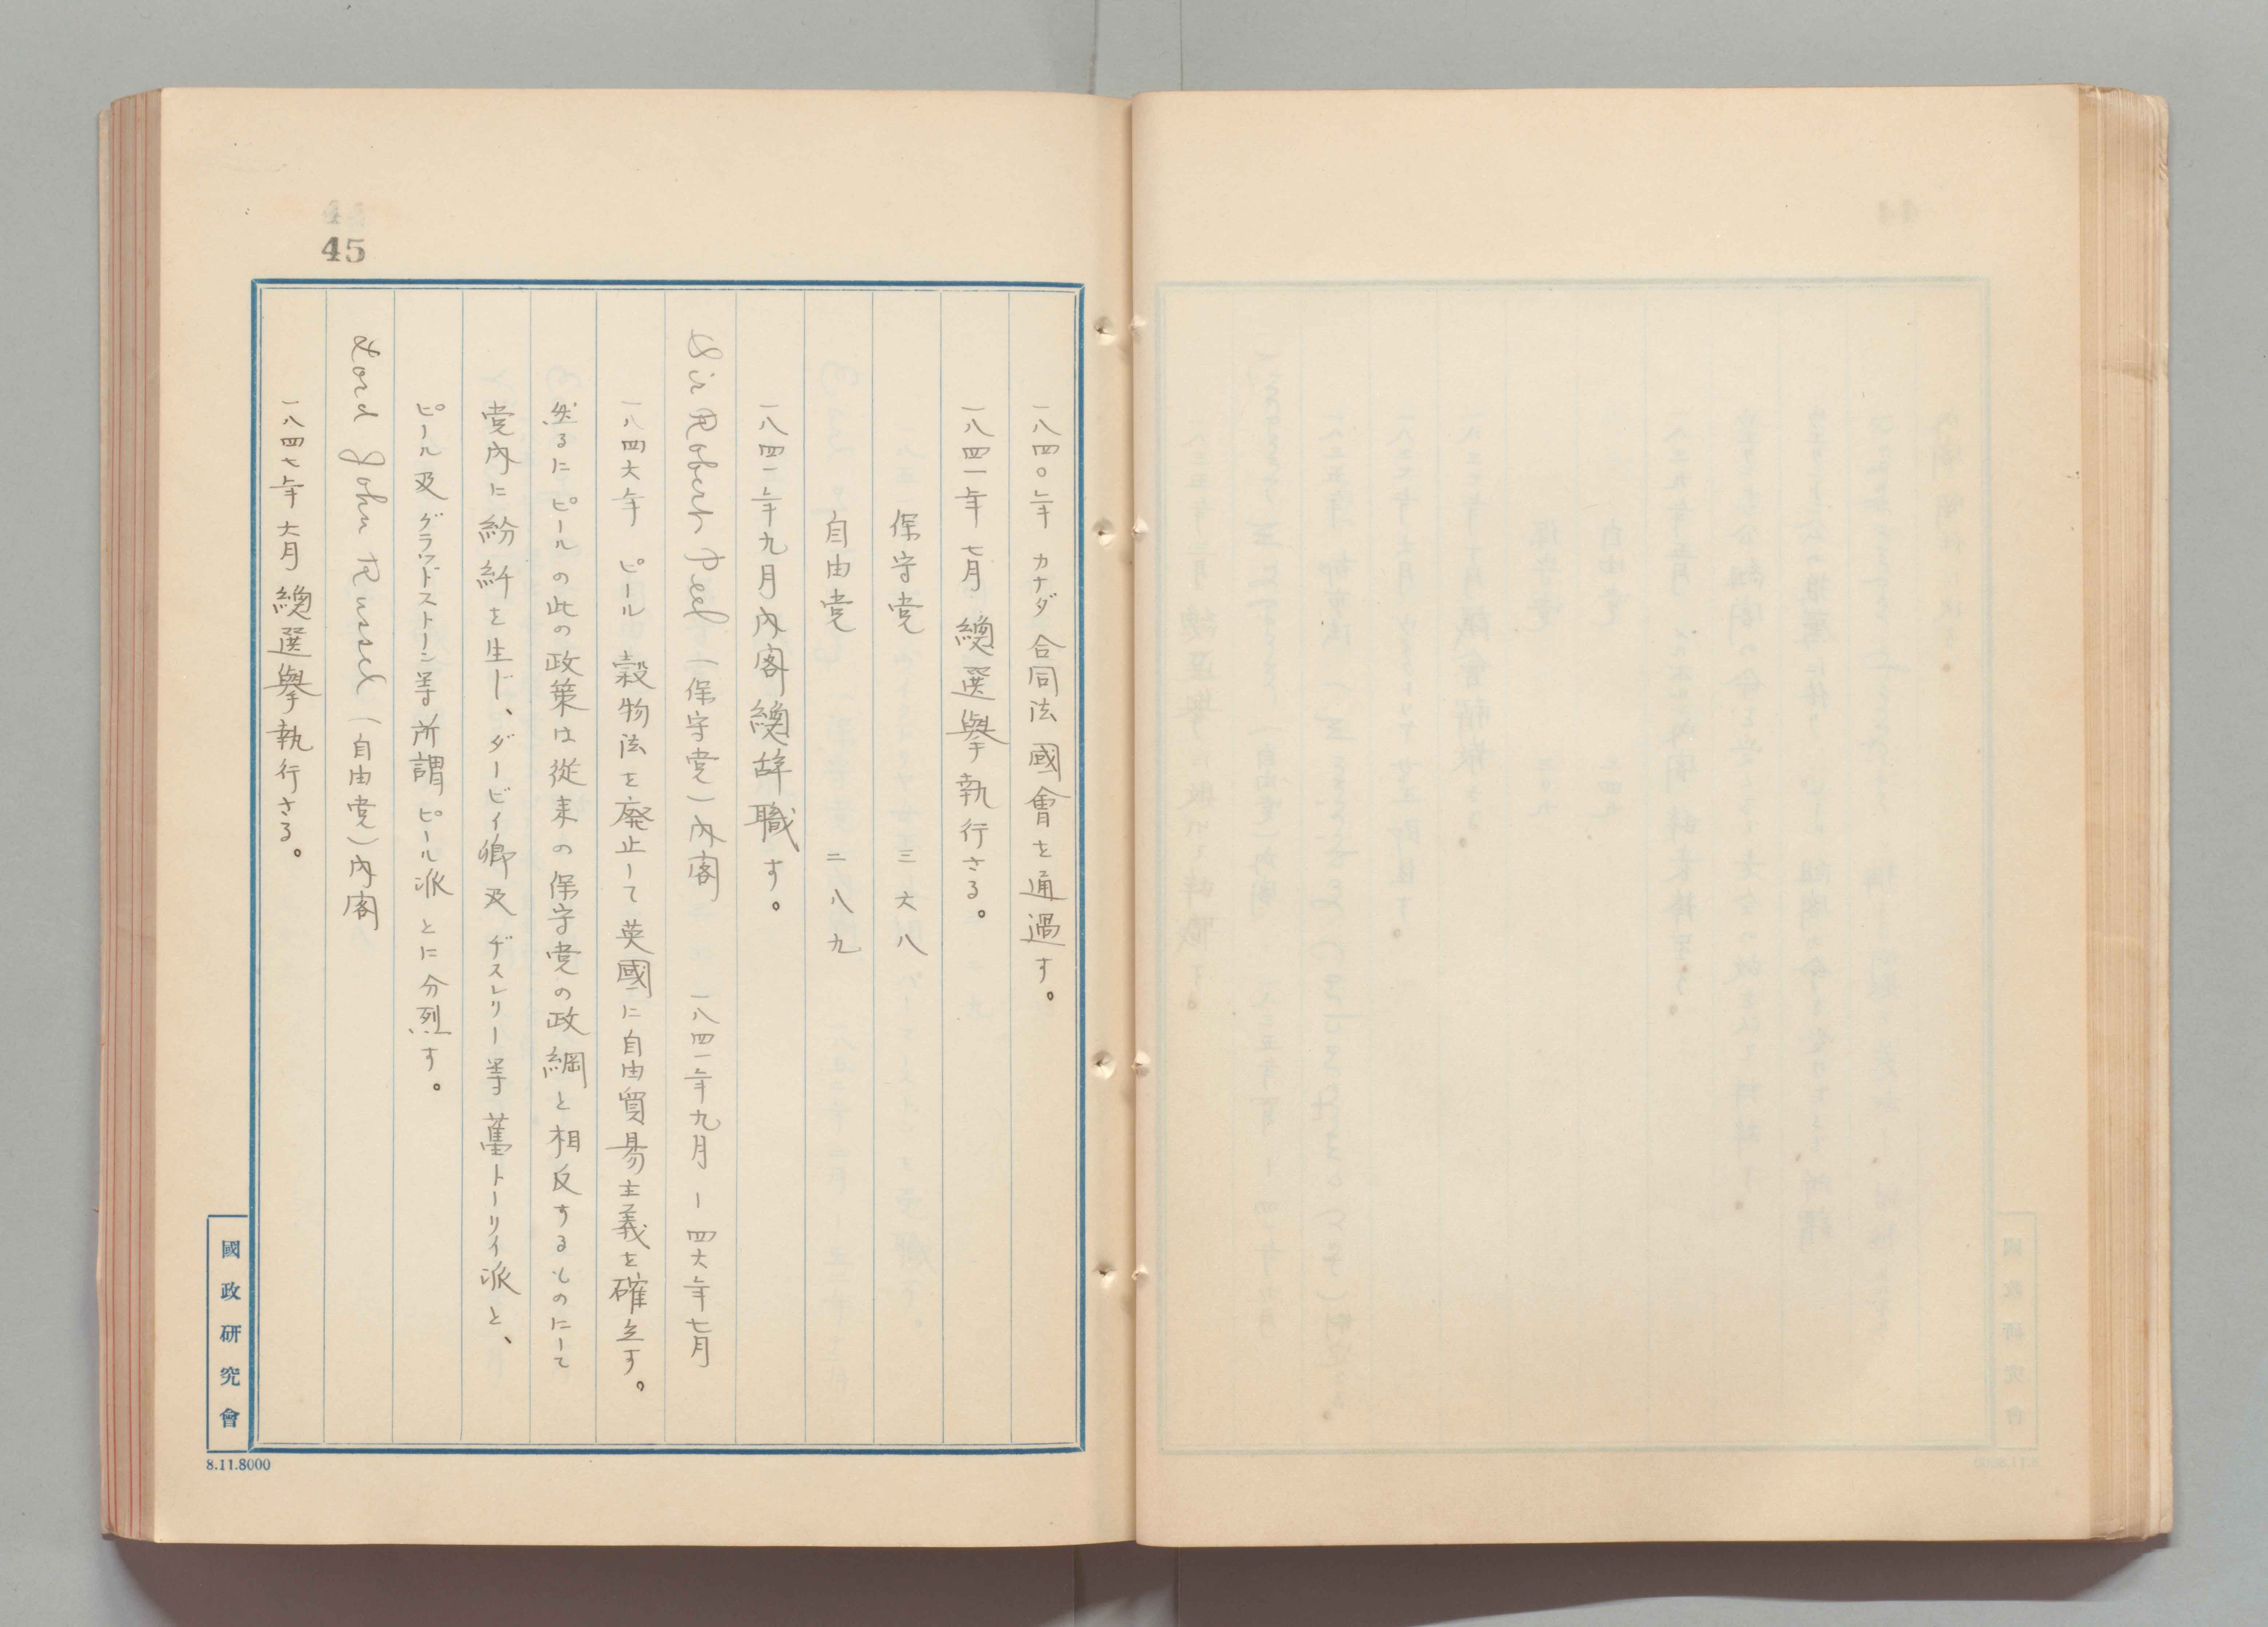 45
一八四〇年 カナダ合同法國會を通過す。
一八四一年 七月 總選擧執行さる。
保守党 三六八
自由党 二八九
一八四一年九月内閣總辞職す。
Sir Robert Peel (保守党)内閣 一八四一年九月ー四六年七月
一八四六年 ピール 穀物法を廃止して英國に自由貿易主義を確立す。
然るにピールの此の政策は從来の保守党の政綱と相反するものにして
党内に紛糾を生じ、ダービィ卿及ヂスレリー等舊トーリイ派と、
ピール及グラッドストーン等所謂ピール派とに分烈す。
Lord John Russel (自由党)内閣
一八四七年 六月 總選擧執行さる。
國政研究會
8.11.8000